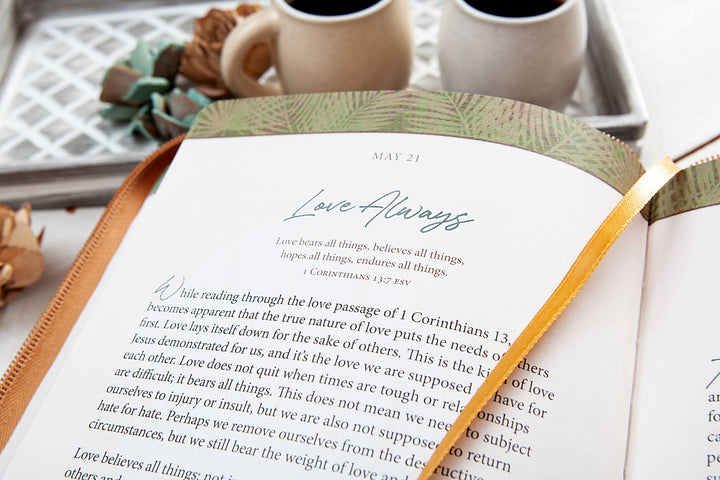 MAY 21
Love Always
Love bears all things, believes all things,
hopes all things, endures all things.
1 CORINTHIANS 13:7 ESV
While reading through the love passage of 1 Corinthians 13,
becomes apparent that the true nature of love puts the needs of others
first. Love lays itself down for the sake of others. This is the kind of love
Jesus demonstrated for us, and it's the love we are supposed have for
each other. Love does not quit when times are tough or relationships
are difficult; it bears all things. This does not mean we need to subject
ourselves to injury or insult, but we are also not supposed to return
hate for hate. Perhaps we remove ourselves from the destructive
circumstances, but we still bear the weight of love and
Love believes all things; not
others and